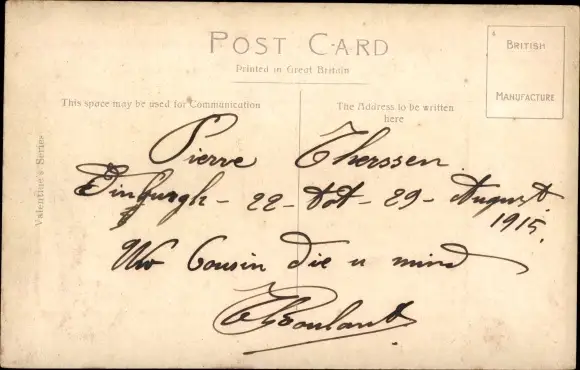 POST CARD
Printed in Great Britain
BRITISH
MANUFACTURE
This space may be used for Communication
The Address to be written
here
Valentine's Series
Pierre Therssen
22 - tot - 29 - August
1915.
Uw Cousin die u mind